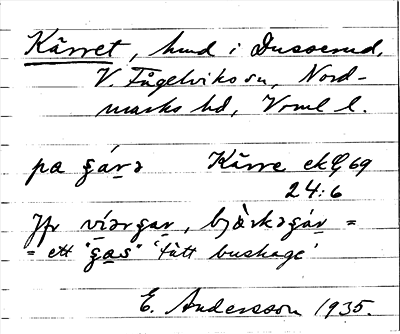 Kärret, hmd i Dusserud,
V. Fågelviks sn, Nord-
marks hd, Vrml l.
på gárə Kärre ek Q 69
24:6
Jfr víərgar, bjœ̀rkəgár =
= ett "gas" 'tätt buskage'
E. Andersson 1935.